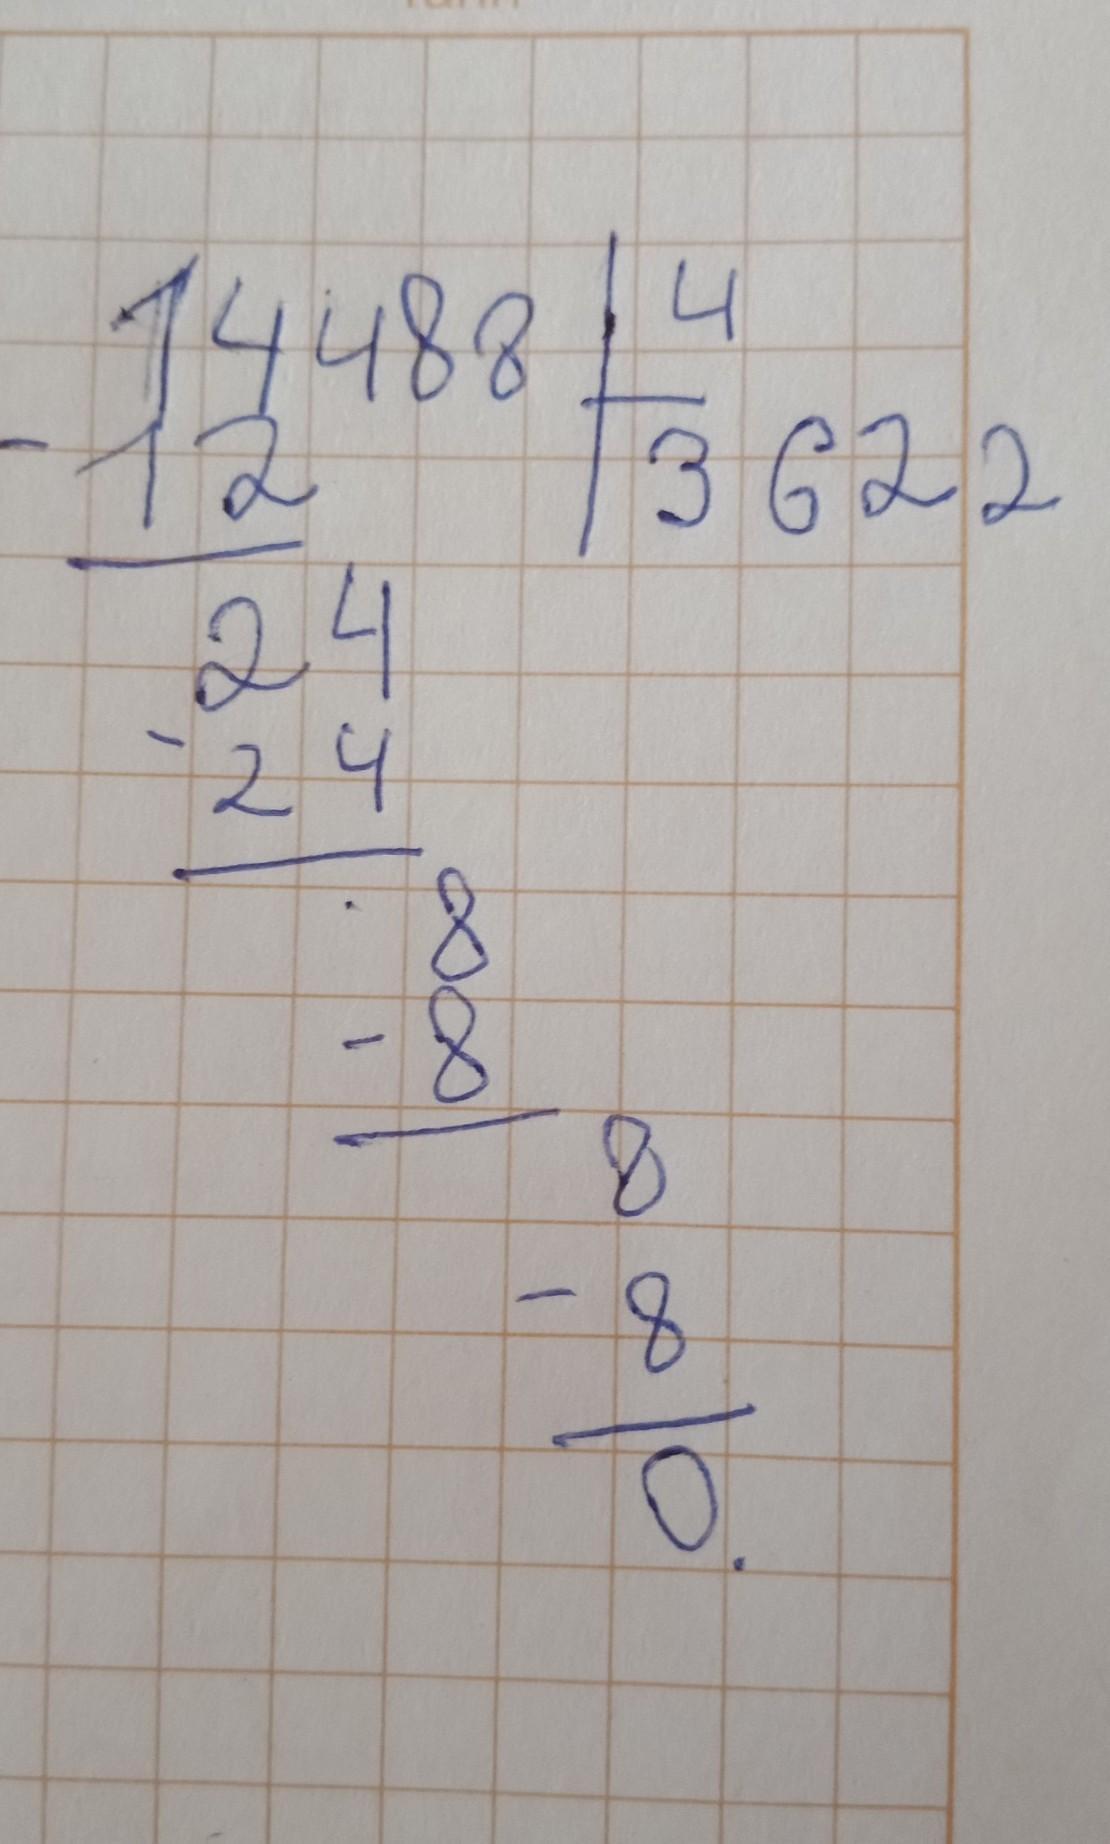 14488 | 4
- 12 | 3622
24
- 24
8
- 8
8
- 8
0.